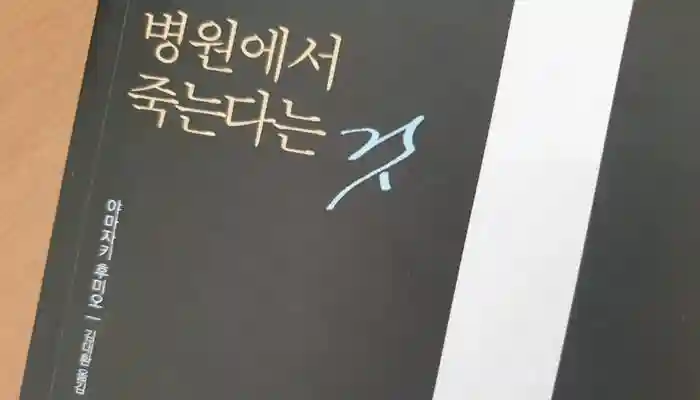 병원에서
죽는다는 것
야마자키 후미오 | 김대환 옮김